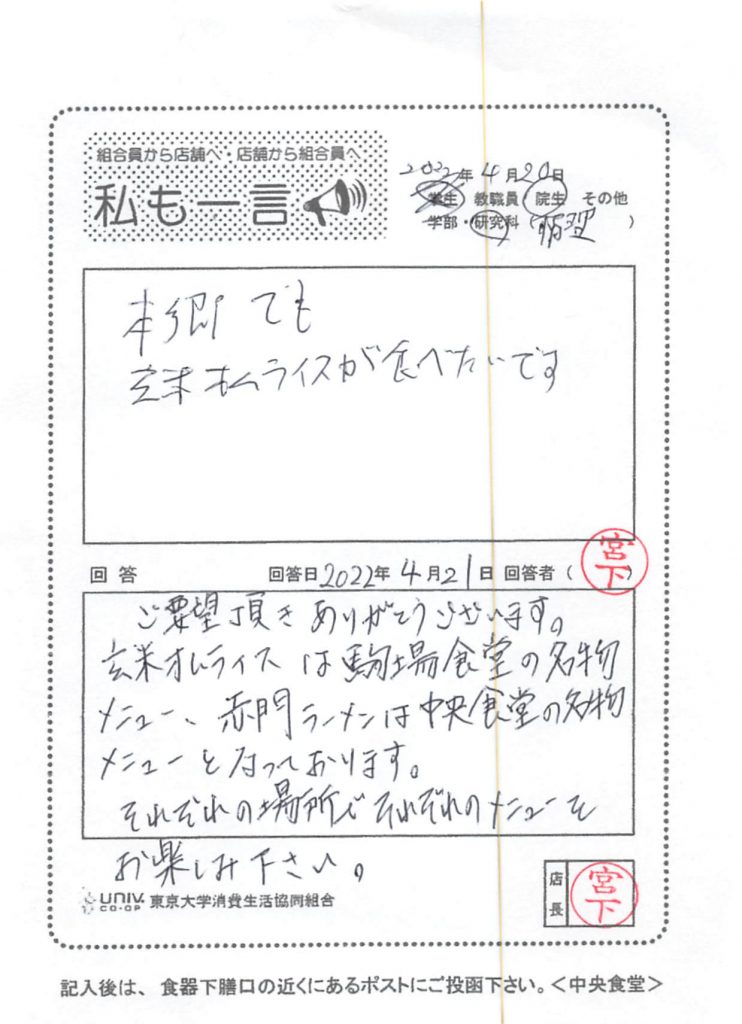 組合員から店舗へ・店舗から組合員へ
私も一言
2022年4月20日
学生・教職員・院生 その他
学部・研究科( )
本郷でも
玄米オムライスが食べたいです
回答 回答日2022年4月21日 回答者(宮下)
ご要望頂きありがとうございます。
玄米オムライスは駒場食堂の名物
メニュー、赤門ラーメンは中央食堂の名物
メニューとなっております。
それぞれの場所でそれぞれのメニューを
お楽しみ下さい。
UNIV. CO-OP 東京大学消費生活協同組合
店長 宮下
記入後は、食器下膳口の近くにあるポストにご投函下さい。<中央食堂>